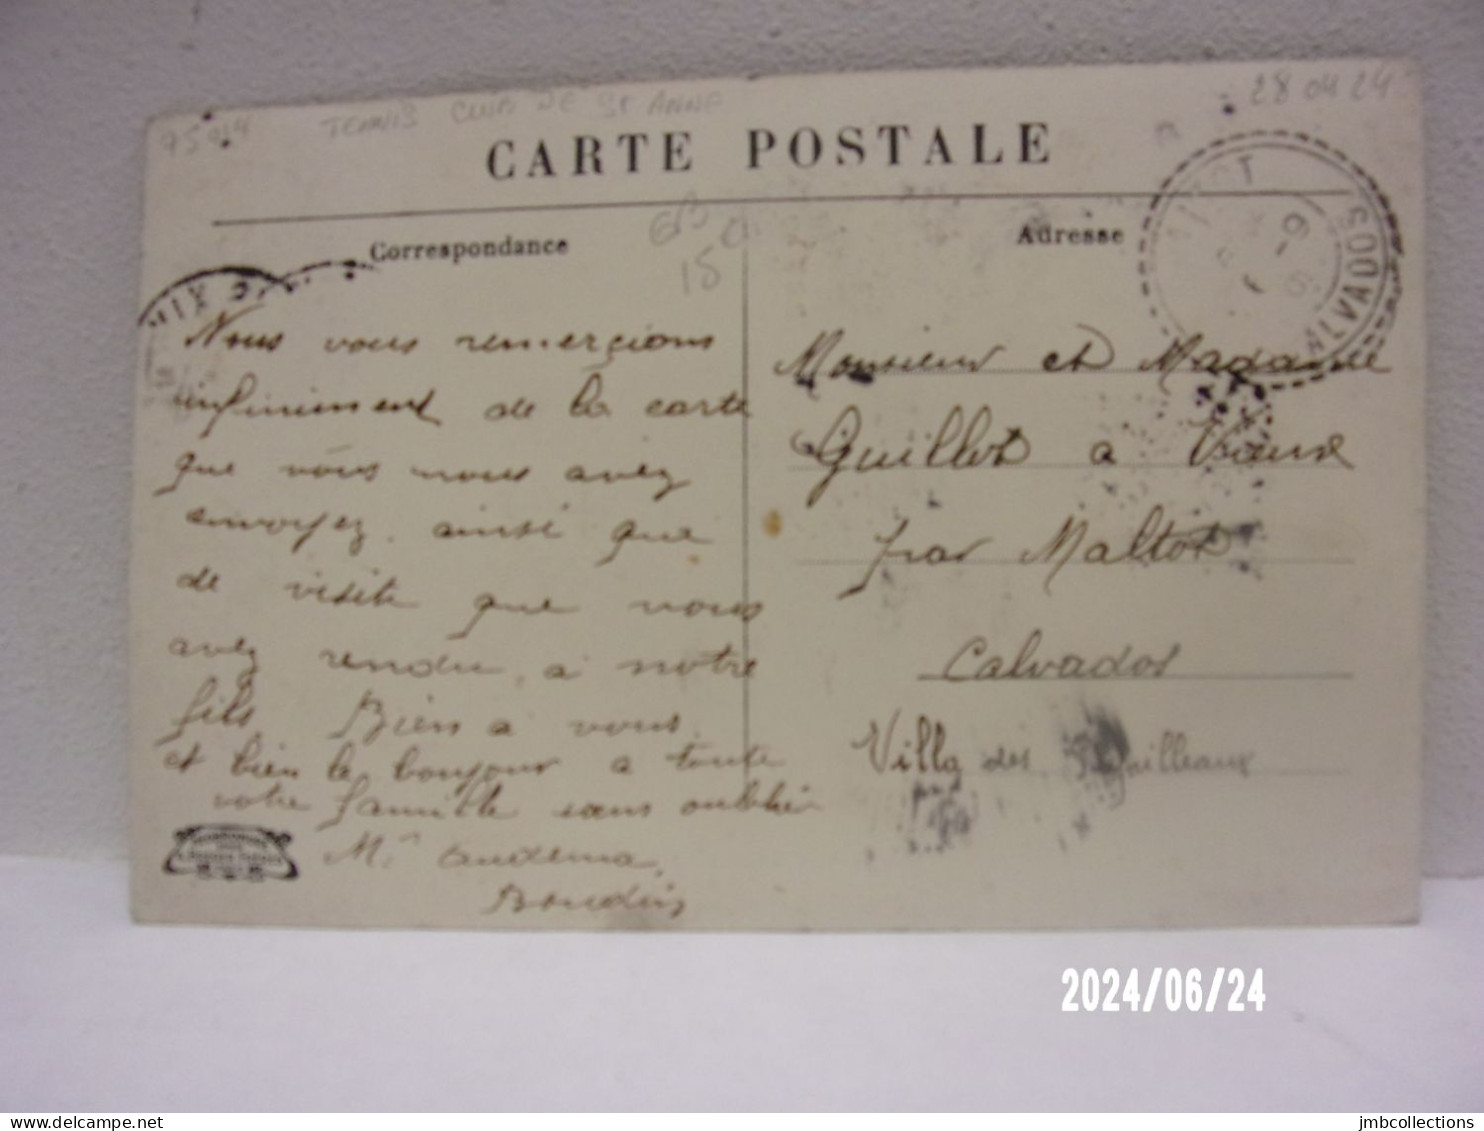 75014 TENNIS CLUB DE St ANNE 28 04 24
CARTE POSTALE
Correspondance
Adresse
CALVADOS
15
Nous vous remerçions
infiniment de la carte
que vous nous avez
envoyez. ainsi que
de visite que vous
avez rendu, a notre
fils Bien a vous
et bien le bonjour a toute
votre famille sans oublier
Monsieur et Madame
Guillot a Vieux
par Maltot
Calvados
Villa des
2024/06/24
jmbcollections